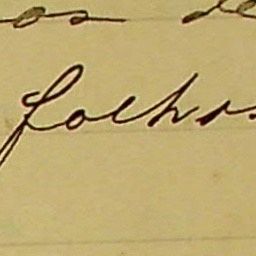 os de
folhas